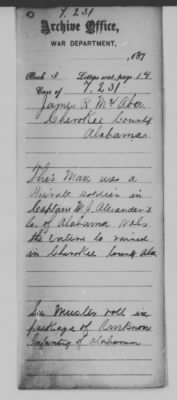 7. 231
Archive Office,
WAR DEPARTMENT,
,187
Book 3 Letters sent, page 14
Case of 7, 231
James R. McAbee
Cherokee County
Alabama.
This man was a
Private soldier in
Captain W. J. Alexander's
Co. of Alabama Vols.
the entire Co raised
in Cherokee County Ala
See Muster roll in
package of Unknown
Infantry of Alabama